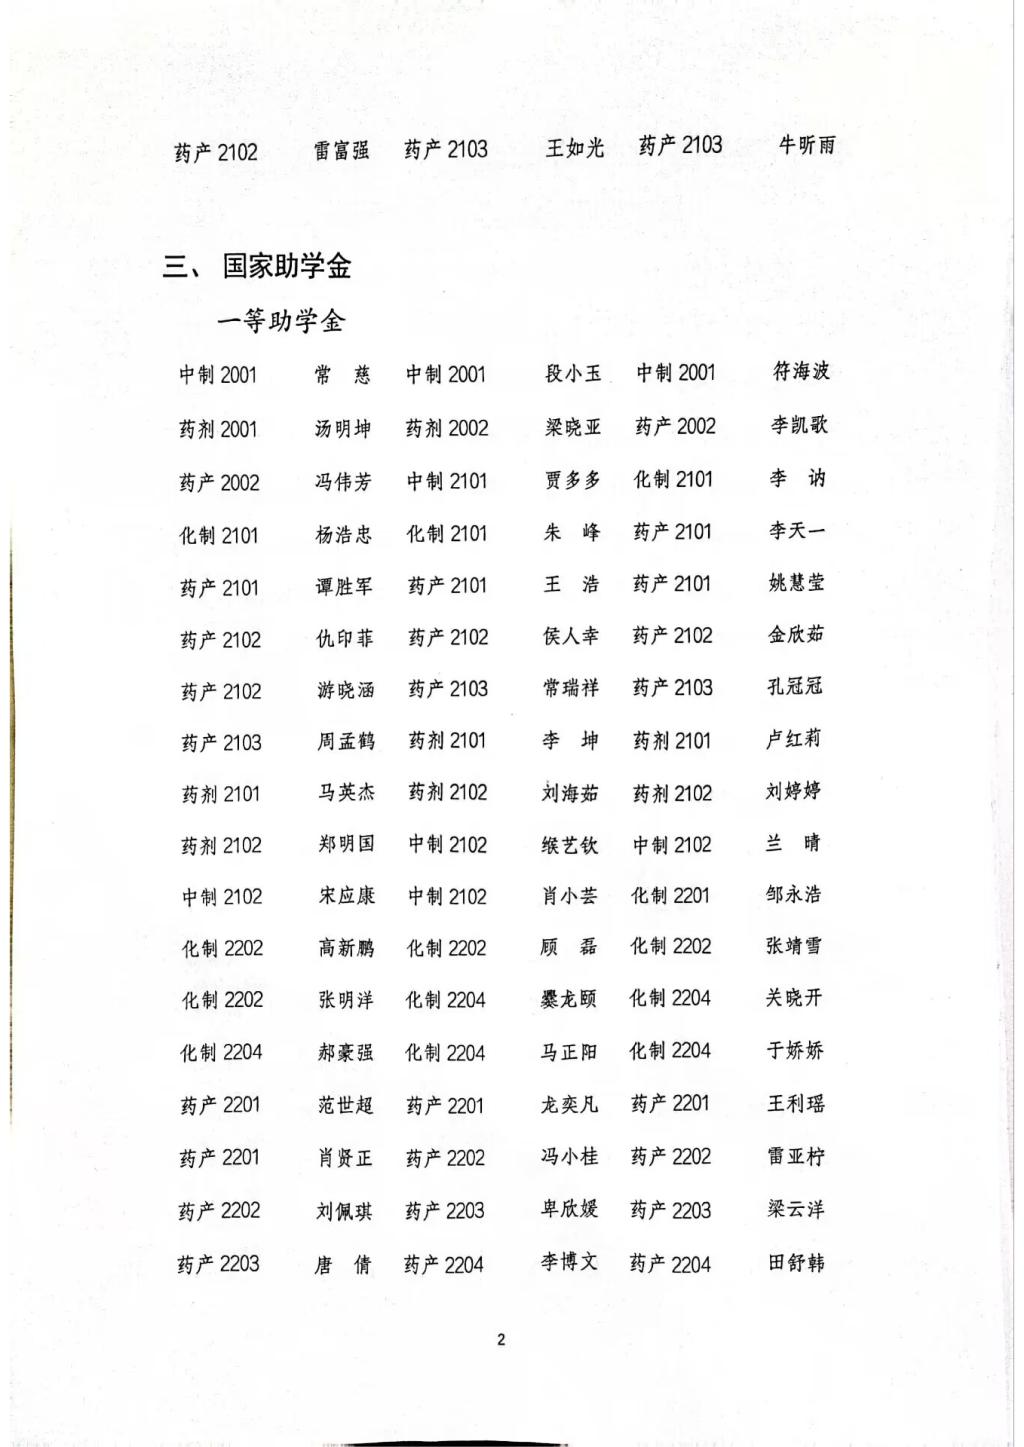 药产2102 雷富强 药产2103 王如光 药产2103 牛昕雨
三、国家助学金
一等助学金
中制2001 常 慈 中制2001 段小玉 中制2001 符海波
药剂2001 汤明坤 药剂2002 梁晓亚 药产2002 李凯歌
药产2002 冯伟芳 中制2101 贾多多 化制2101 李 讷
化制2101 杨浩忠 化制2101 朱 峰 药产2101 李天一
药产2101 谭胜军 药产2101 王 浩 药产2101 姚慧莹
药产2102 仇印菲 药产2102 侯人幸 药产2102 金欣茹
药产2102 游晓涵 药产2103 常瑞祥 药产2103 孔冠冠
药产2103 周孟鹤 药剂2101 李 坤 药剂2101 卢红莉
药剂2101 马英杰 药剂2102 刘海茹 药剂2102 刘婷婷
药剂2102 郑明国 中制2102 缑艺钦 中制2102 兰 晴
中制2102 宋应康 中制2102 肖小芸 化制2201 邹永浩
化制2202 高新鹏 化制2202 顾 磊 化制2202 张靖雪
化制2202 张明洋 化制2204 爨龙颐 化制2204 关晓开
化制2204 郝豪强 化制2204 马正阳 化制2204 于娇娇
药产2201 范世超 药产2201 龙奕凡 药产2201 王利瑶
药产2201 肖贤正 药产2202 冯小桂 药产2202 雷亚柠
药产2202 刘佩琪 药产2203 卑欣媛 药产2203 梁云洋
药产2203 唐 倩 药产2204 李博文 药产2204 田舒韩
2